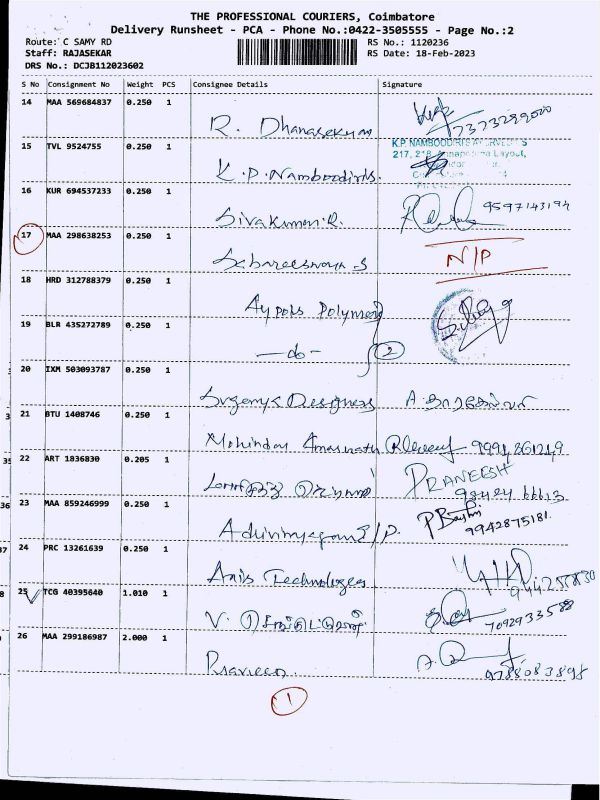 THE PROFESSIONAL COURIERS, Coimbatore
Delivery Runsheet - PCA - Phone No.:0422-3505555 - Page No.:2
Route: C SAMY RD RS No.: 1120236
Staff: RAJASEKAR RS Date: 18-Feb-2023
DRS No.: DCJB112023602
S No Consignment No Weight PCS Consignee Details Signature
14 MAA 569684837 0.250 1
R. Dhanasekaran 7373299020
15 TVL 9524755 0.250 1 K.P. NAMBOODIRI'S AYURVEDICS
217, 218, Layout,
K.P. Namboodiris.
16 KUR 694537233 0.250 1
Sivakumar.R. 9597143194
17 MAA 298638253 0.250 1
Sabareeswaran S N/P
18 HRD 312788379 0.250 1
Aypols Polymers
19 BLR 435272789 0.250 1
—do— 2
20 IXM 503093787 0.250 1
Designers A.
21 BTU 1408746 0.250 1
Mohinder Amarnath 9994261249
22 ART 1836830 0.205 1 PRANEESH
98424 66613
23 MAA 859246999 0.250 1
P 9942875181
24 PRC 13261639 0.250 1
Anis Technologies
25 TCG 40395640 1.010 1
V. 7092933588
26 MAA 299186987 2.000 1
Praveen. 9788083898
1